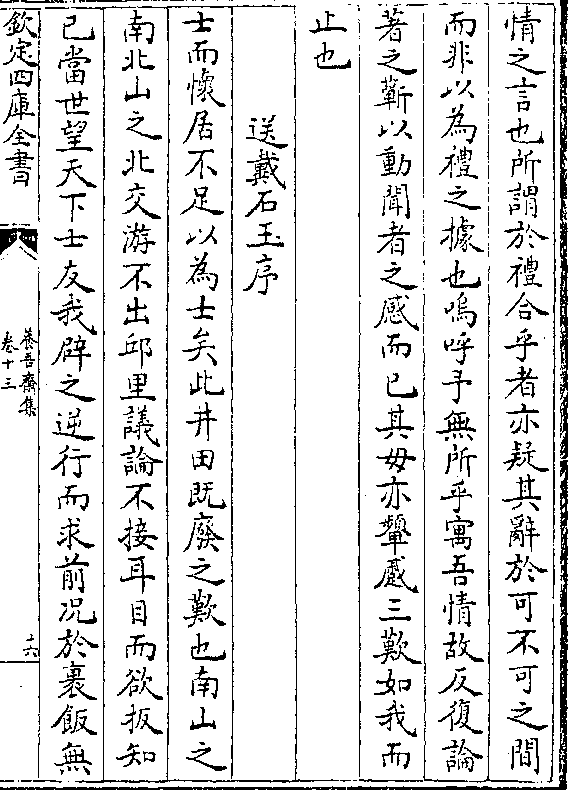 情之言也所謂於禮合乎者亦疑其辭於可不可之間
而非以為禮之據也嗚呼予無所乎寓吾情故反復論
著之蘄以動聞者之感而已其毋亦顰蹙三歎如我而
止也
送戴石玉序
士而懷居不足以為士矣此井田既廢之歎也南山之
南北山之北交游不出邱里議論不接耳目而欲扳知
已當世望天下士友我辟之逆行而求前况於裹飯無
欽定四庫全書
養吾齋集
卷十三
十六